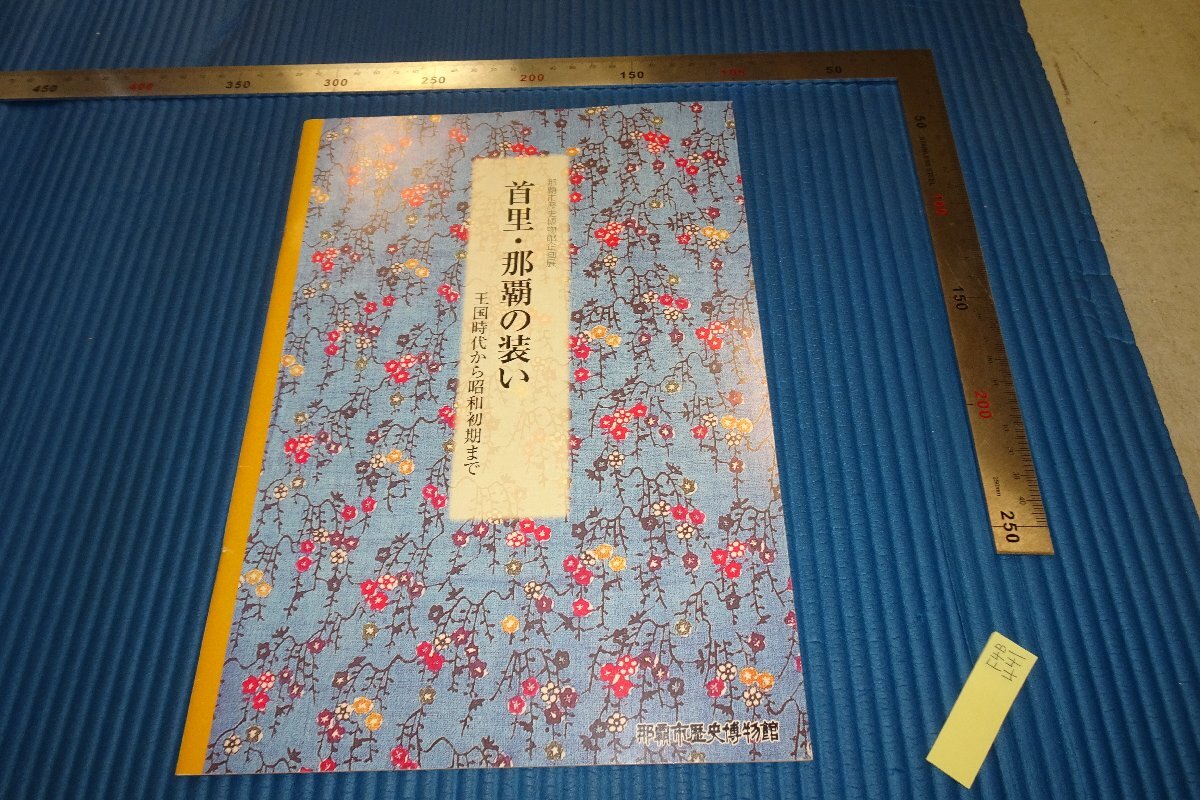 450 400 350 300 250 200 150 100 50
50
100
150
200
250
那覇市歴史博物館企画展
首里・那覇の装い
王国時代から昭和初期まで
那覇市歴史博物館
F4B
441